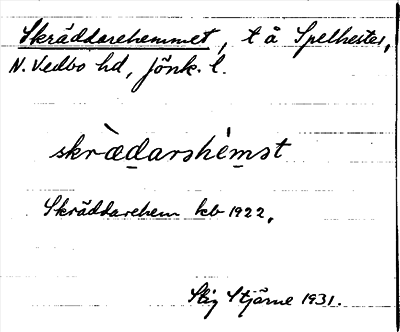 Skräddarehemmet, t å Spelhester,
N. Vedbo hd, Jönk. l.
skrædarshemst
Skräddarehem kb 1922.
Stig Stjärne 1931.